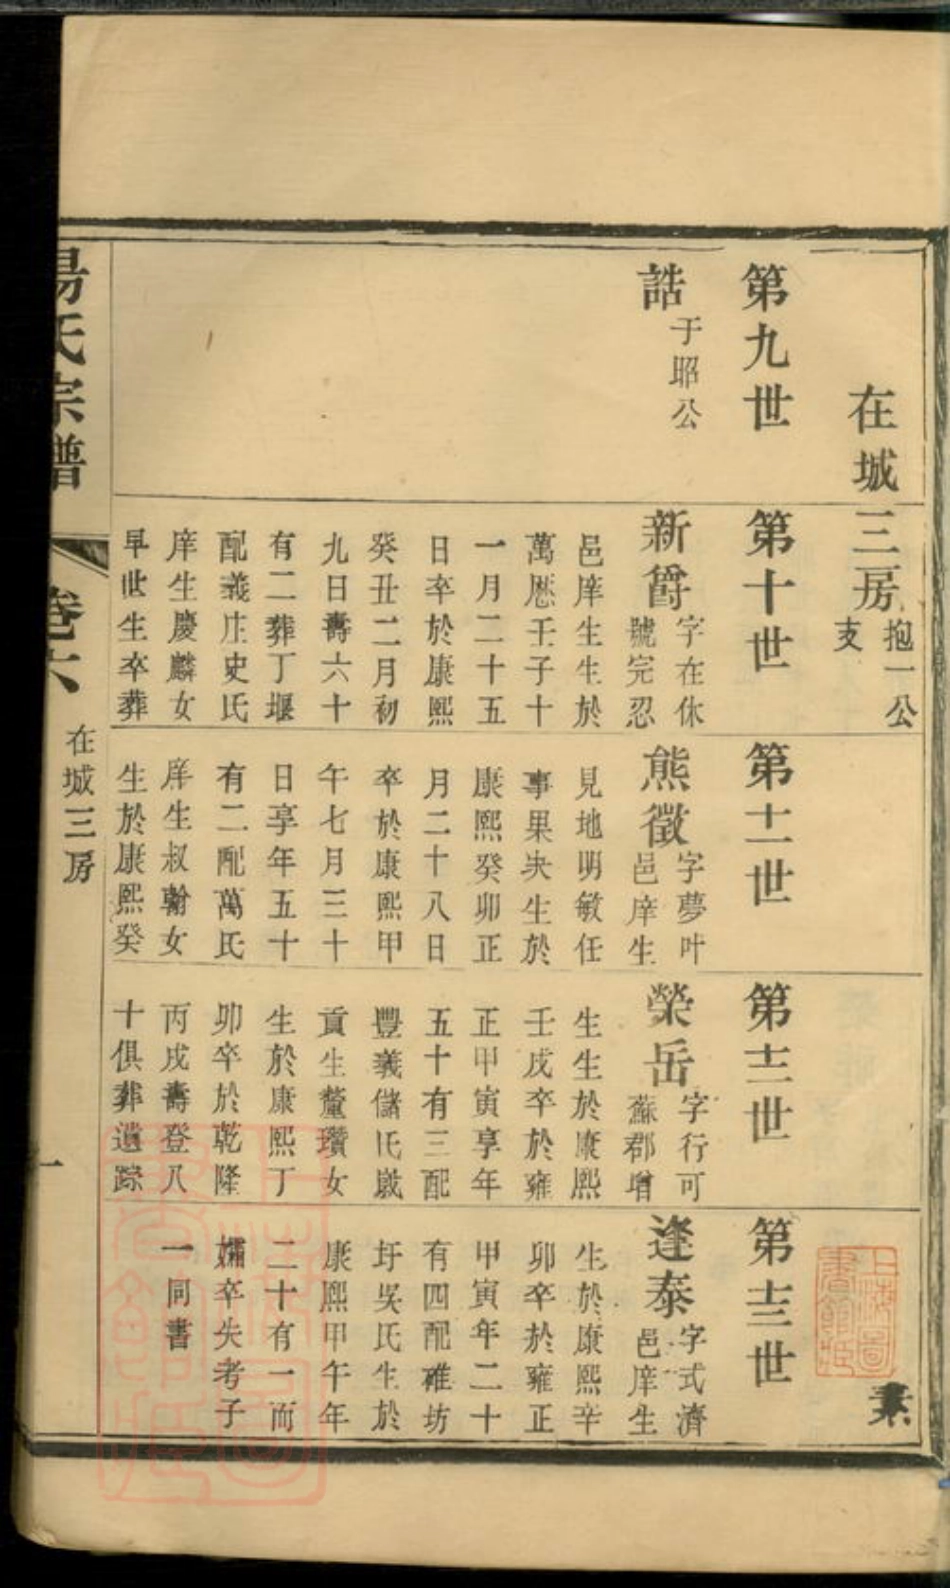 在城三房抱一公支
素
第九世
誥于昭公
第十世
新爵字在休號完忍
邑庠生生於
萬厯壬子十
一月二十五
日卒於康熙
癸丑二月初
九日壽六十
有二葬丁堰
配義庄史氏
庠生慶麟女
早世生卒葬
第十一世
熊徵字夢叶邑庠生
見地明敏任
事果决生於
康熙癸卯正
月二十八日
卒於康熙甲
午七月三十
日享年五十
有二配萬氏
庠生叔翰女
生於康熙癸
第十二世
榮岳字行可蘇郡增
生生於康熙
壬戌卒於雍
正甲寅享年
五十有三配
豐義儲氏歲
貢生釐瓚女
生於康熙丁
卯卒於乾隆
丙戌壽登八
十俱葬遺踪
第十三世
逢泰字式濟邑庠生
生於康熙辛
卯卒於雍正
甲寅年二十
有四配雒坊
圩吳氏生於
康熙甲午年
二十有一而
孀卒失考子
一同書
楊氏宗譜
卷六
在城三房
一
上海圖書館藏